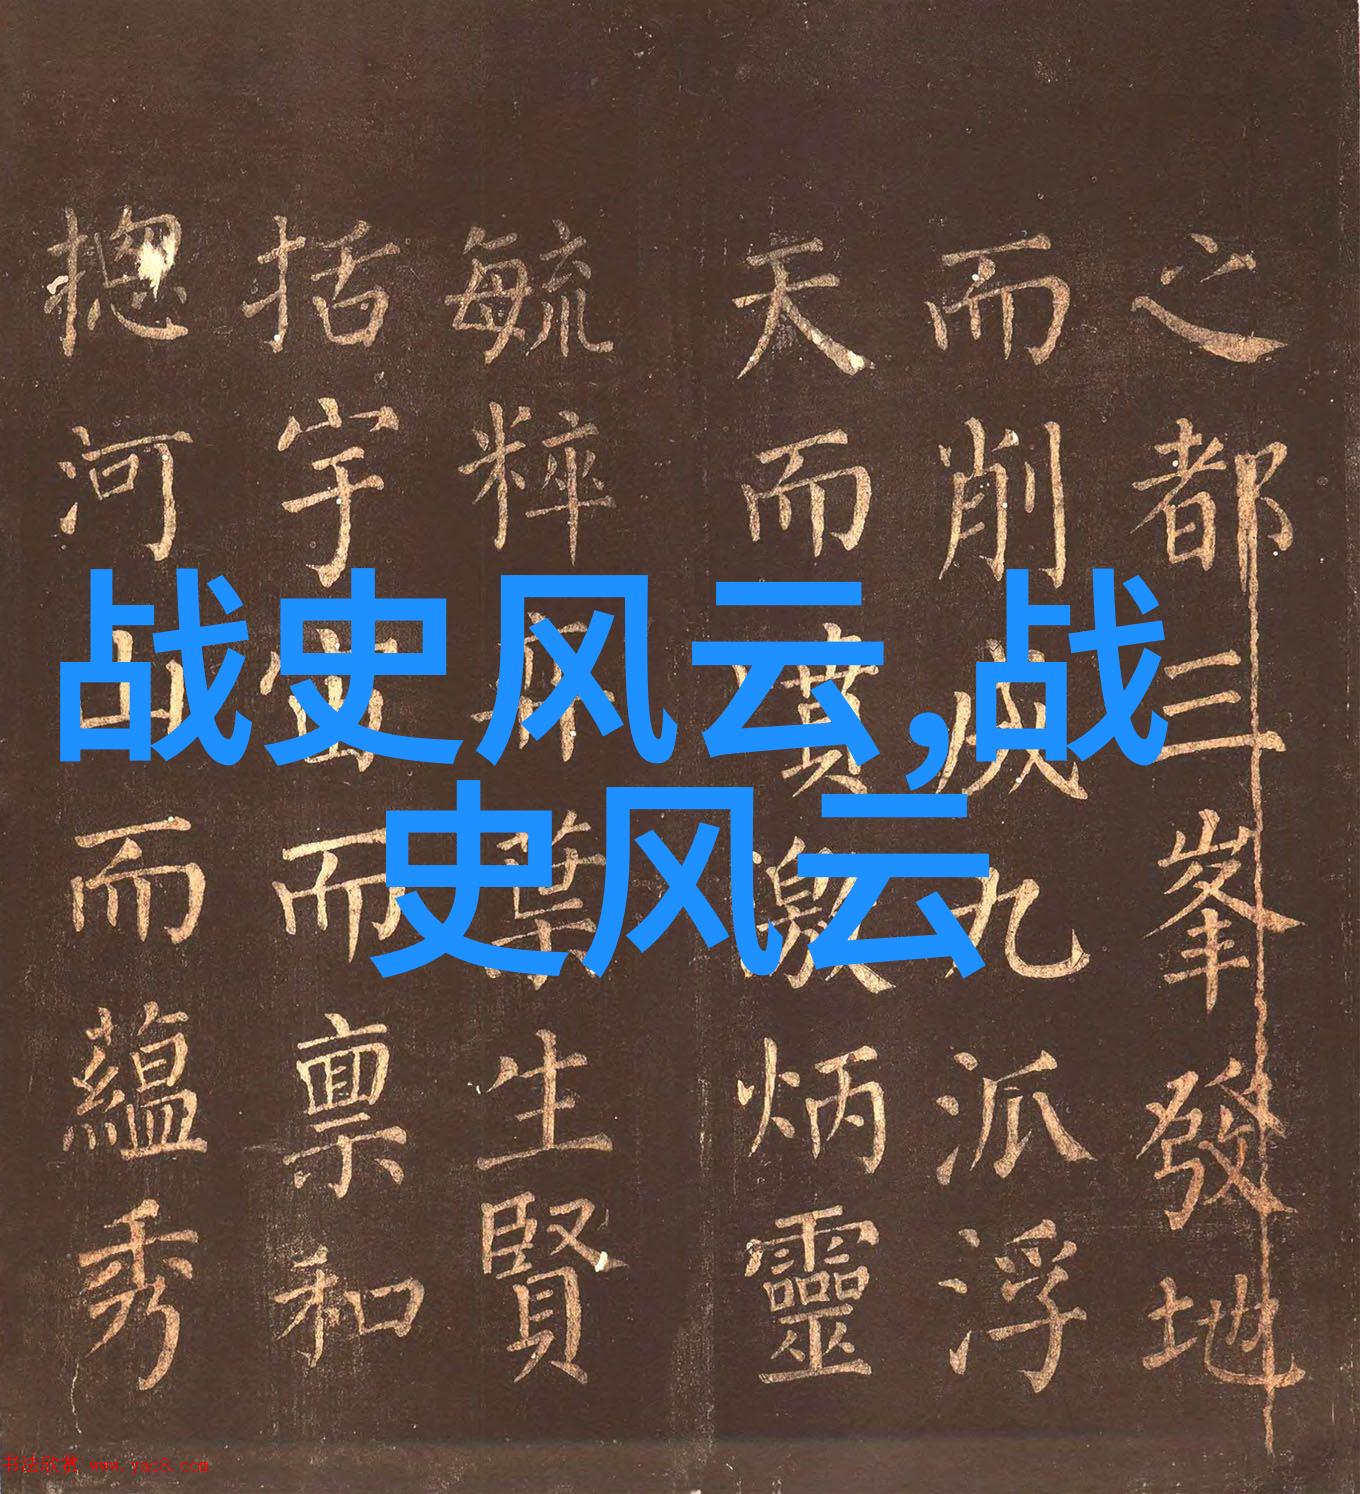 战史风云,战
史风云
之都三峯發地
而削成九派浮
天而激炳靈
毓粹葉生賢
括宇宙而禀和
揔河山而藴秀
书法欣赏 www.yac8.com